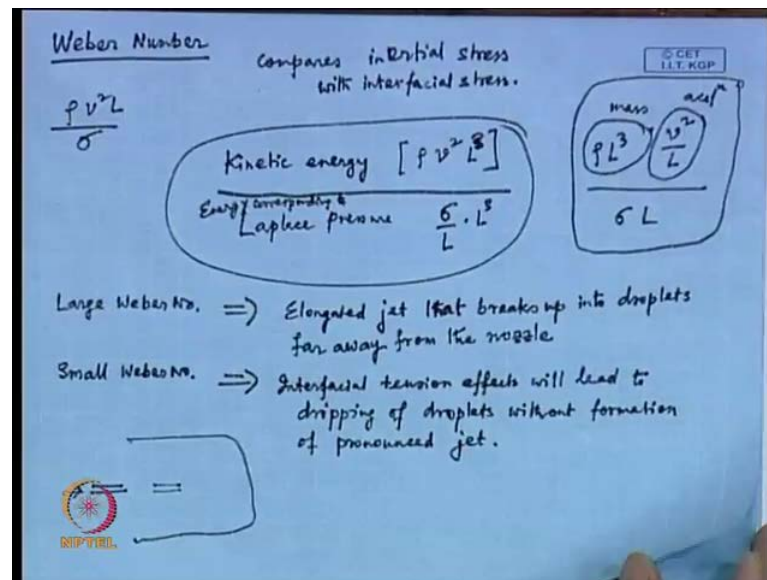 Weber Number
compares inertial stress
with interfacial stress.
© CET
I.I.T. KGP
ρ v² L
σ
Kinetic energy [ρ v² L³]
Energy corresponding to
Laplace Pressure σ/L · L³
mass accⁿ
ρL³ v²/L
σ L
Large Weber No. ⇒ Elongated jet that breaks up into droplets
far away from the nozzle
Small Weber No. ⇒ Interfacial tension effects will lead to
dripping of droplets without formation
of pronounced jet.
= =
NPTEL